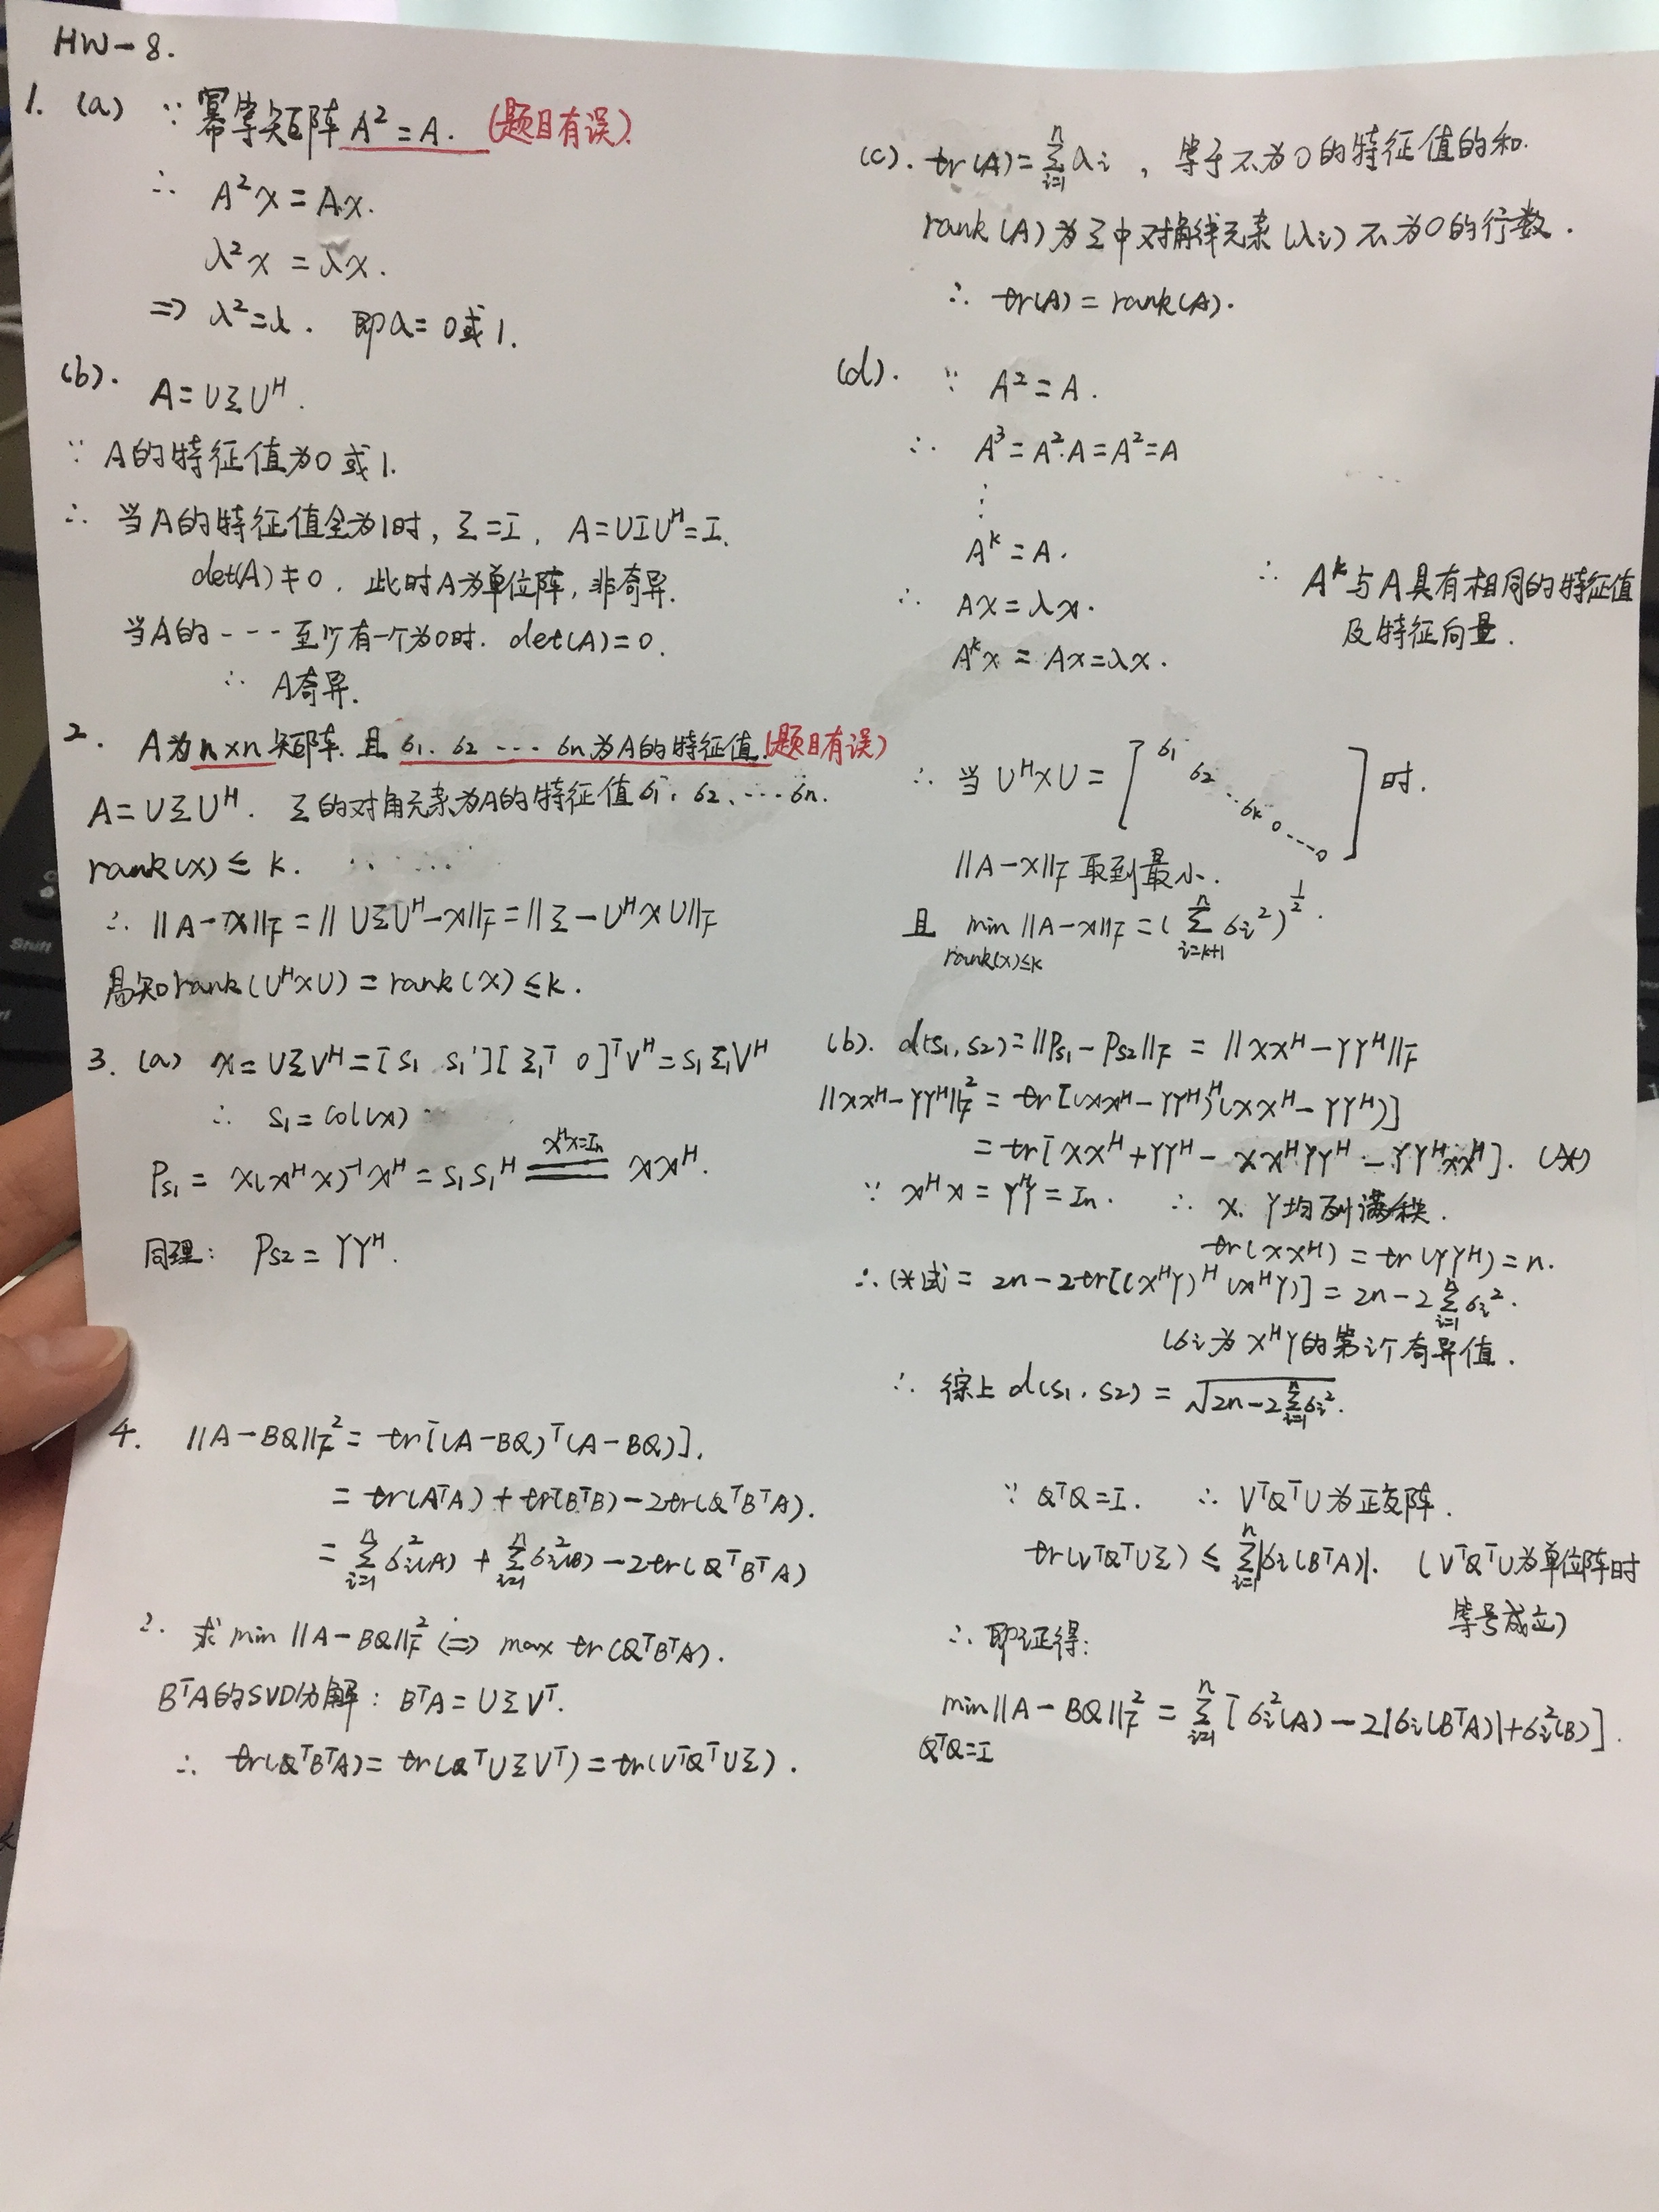 HW-8.
1. (a) ∵ 幂等矩阵 A² = A. (题目有误).
∴ A²x = Ax.
λ²x = λx.
⇒ λ²=λ. 即λ= 0或1.
(b). A = UΣU^H.
∵ A的特征值为0或1.
∴ 当A的特征值全为1时, Σ=I, A=UIU^H=I.
det(A)≠0, 此时A为单位阵, 非奇异.
当A的---至少有一个为0时. det(A)=0.
∴ A奇异.
(c). tr(A)=∑_{i=1}^n λi , 等于不为0的特征值的和.
rank(A)为Σ中对角线元素(λi)不为0的行数.
∴ tr(A) = rank(A).
(d). ∵ A² = A.
∴ A³ = A²·A = A² = A
⋮
A^k = A.
∴ Ax = λx.
A^k x = Ax = λx.
∴ A^k与A具有相同的特征值
及特征向量.
2. A为n×n矩阵. 且 σ1. σ2 ... σn为A的特征值.(题目有误)
A = UΣU^H. Σ的对角元素为A的特征值σ1, σ2, ... σn.
rank(X) ≤ k.
∴ ||A-X||_F = ||UΣU^H-X||_F = ||Σ-U^HXU||_F
易知rank(U^HXU) = rank(X) ≤ k.
∴ 当 U^HXU = [σ1 σ2 ... σk 0 ... 0] 时.
||A-X||_F 取到最小.
且 min_{rank(X)≤k} ||A-X||_F = (∑_{i=k+1}^n σi²)^{1/2}.
3. (a) X = UΣV^H = [S1 S1'][Σ1^T 0]^T V^H = S1Σ1V^H
∴ S1 = col(X)
P_{S1} = X(X^HX)^{-1}X^H = S1S1^H =(X^HX=In)= XX^H.
同理: P_{S2} = YY^H.
(b). d(S1, S2) = ||P_{S1} - P_{S2}||_F = ||XX^H-YY^H||_F
||XX^H-YY^H||_F² = tr[(XX^H-YY^H)^H(XX^H-YY^H)]
= tr[XX^H+YY^H - XX^HYY^H - YY^HXX^H]. (*)
∵ X^HX = Y^HY = In. ∴ X. Y均列满秩.
tr(XX^H) = tr(YY^H) = n.
∴ (*)式 = 2n-2tr[(X^HY)^H(X^HY)] = 2n-2∑_{i=1}^n σi².
(σi为X^HY的第i个奇异值.
∴ 综上 d(S1, S2) = √(2n-2∑_{i=1}^n σi²).
4. ||A-BQ||_F² = tr[(A-BQ)^T(A-BQ)].
= tr(A^TA) + tr(B^TB) - 2tr(Q^TB^TA).
= ∑_{i=1}^n σi²(A) + ∑_{i=1}^n σi²(B) - 2tr(Q^TB^TA)
∴ 求 min ||A-BQ||_F² ⇔ max tr(Q^TB^TA).
B^TA的SVD分解: B^TA = UΣV^T.
∴ tr(Q^TB^TA) = tr(Q^TUΣV^T) = tr(V^TQ^TUΣ).
∵ Q^TQ=I. ∴ V^TQ^TU为正交阵.
tr(V^TQ^TUΣ) ≤ ∑_{i=1}^n |σi(B^TA)|. (V^TQ^TU为单位阵时
等号成立)
∴ 即证得:
min_{Q^TQ=I} ||A-BQ||_F² = ∑_{i=1}^n [σi²(A) - 2|σi(B^TA)| + σi²(B)].